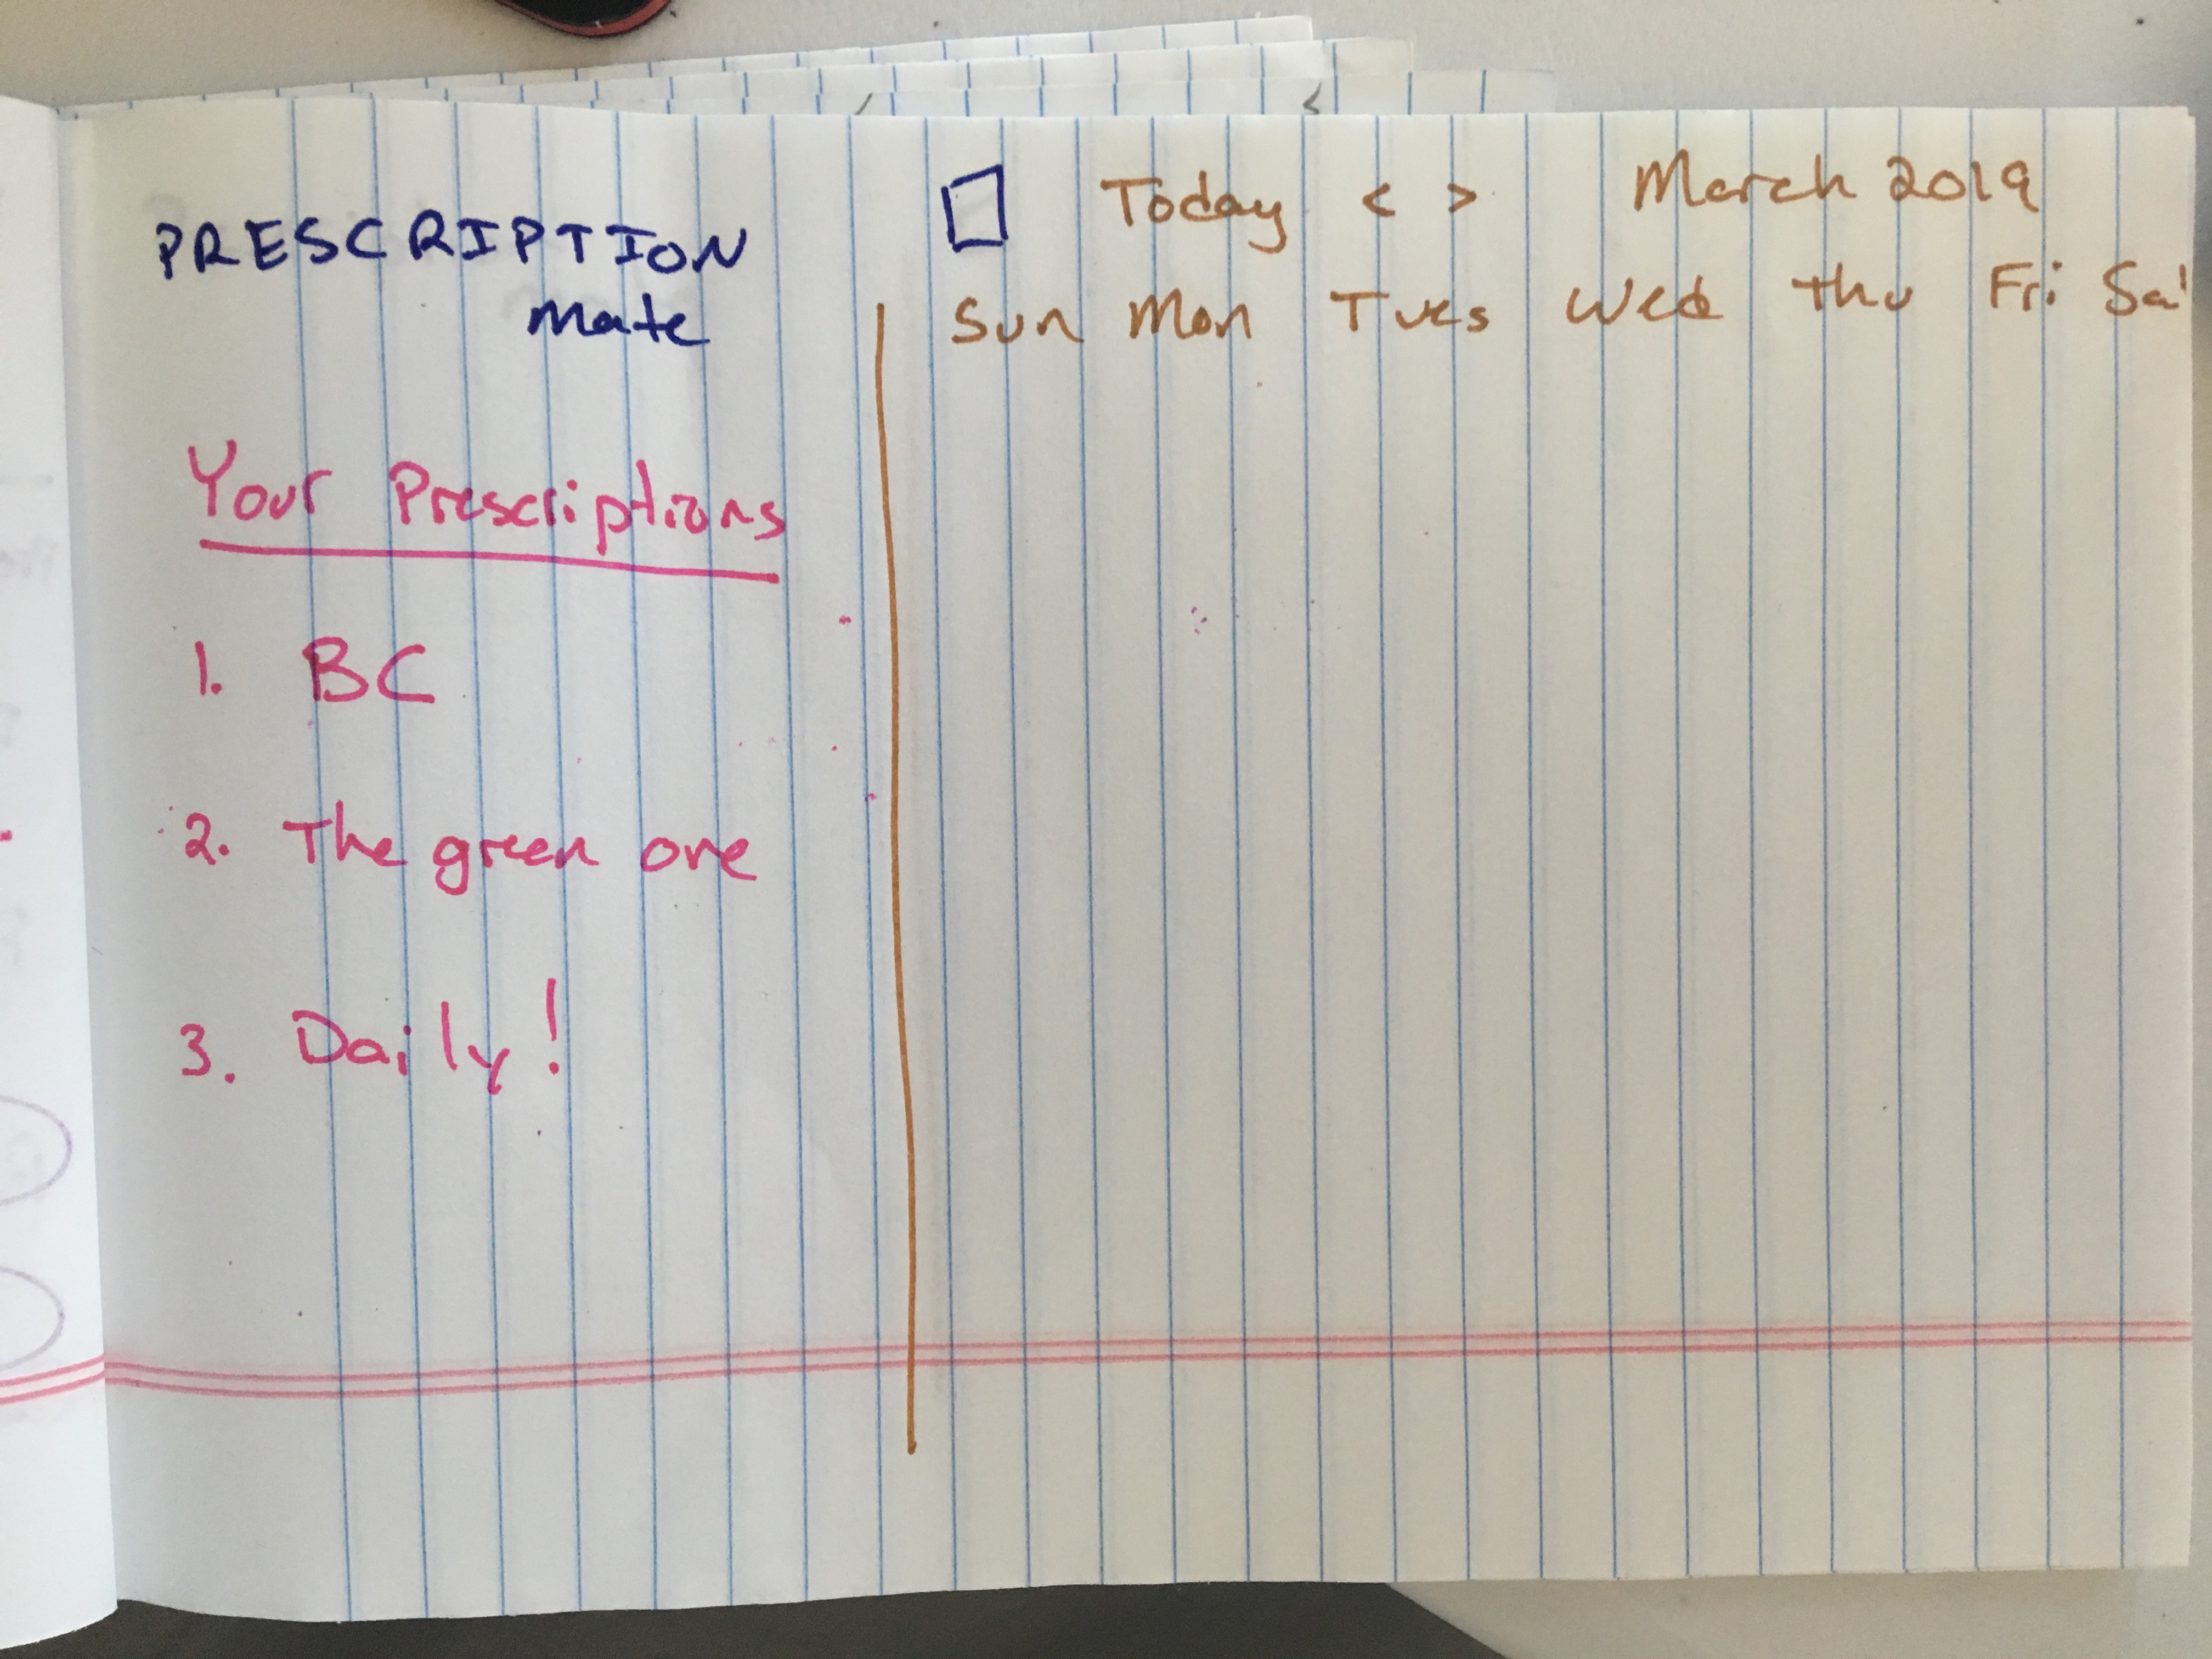 PRESCRIPTION
Mate
Your Prescriptions
1. BC
2. The green one
3. Daily!
Today < > March 2019
Sun Mon Tues Wed Thu Fri Sat